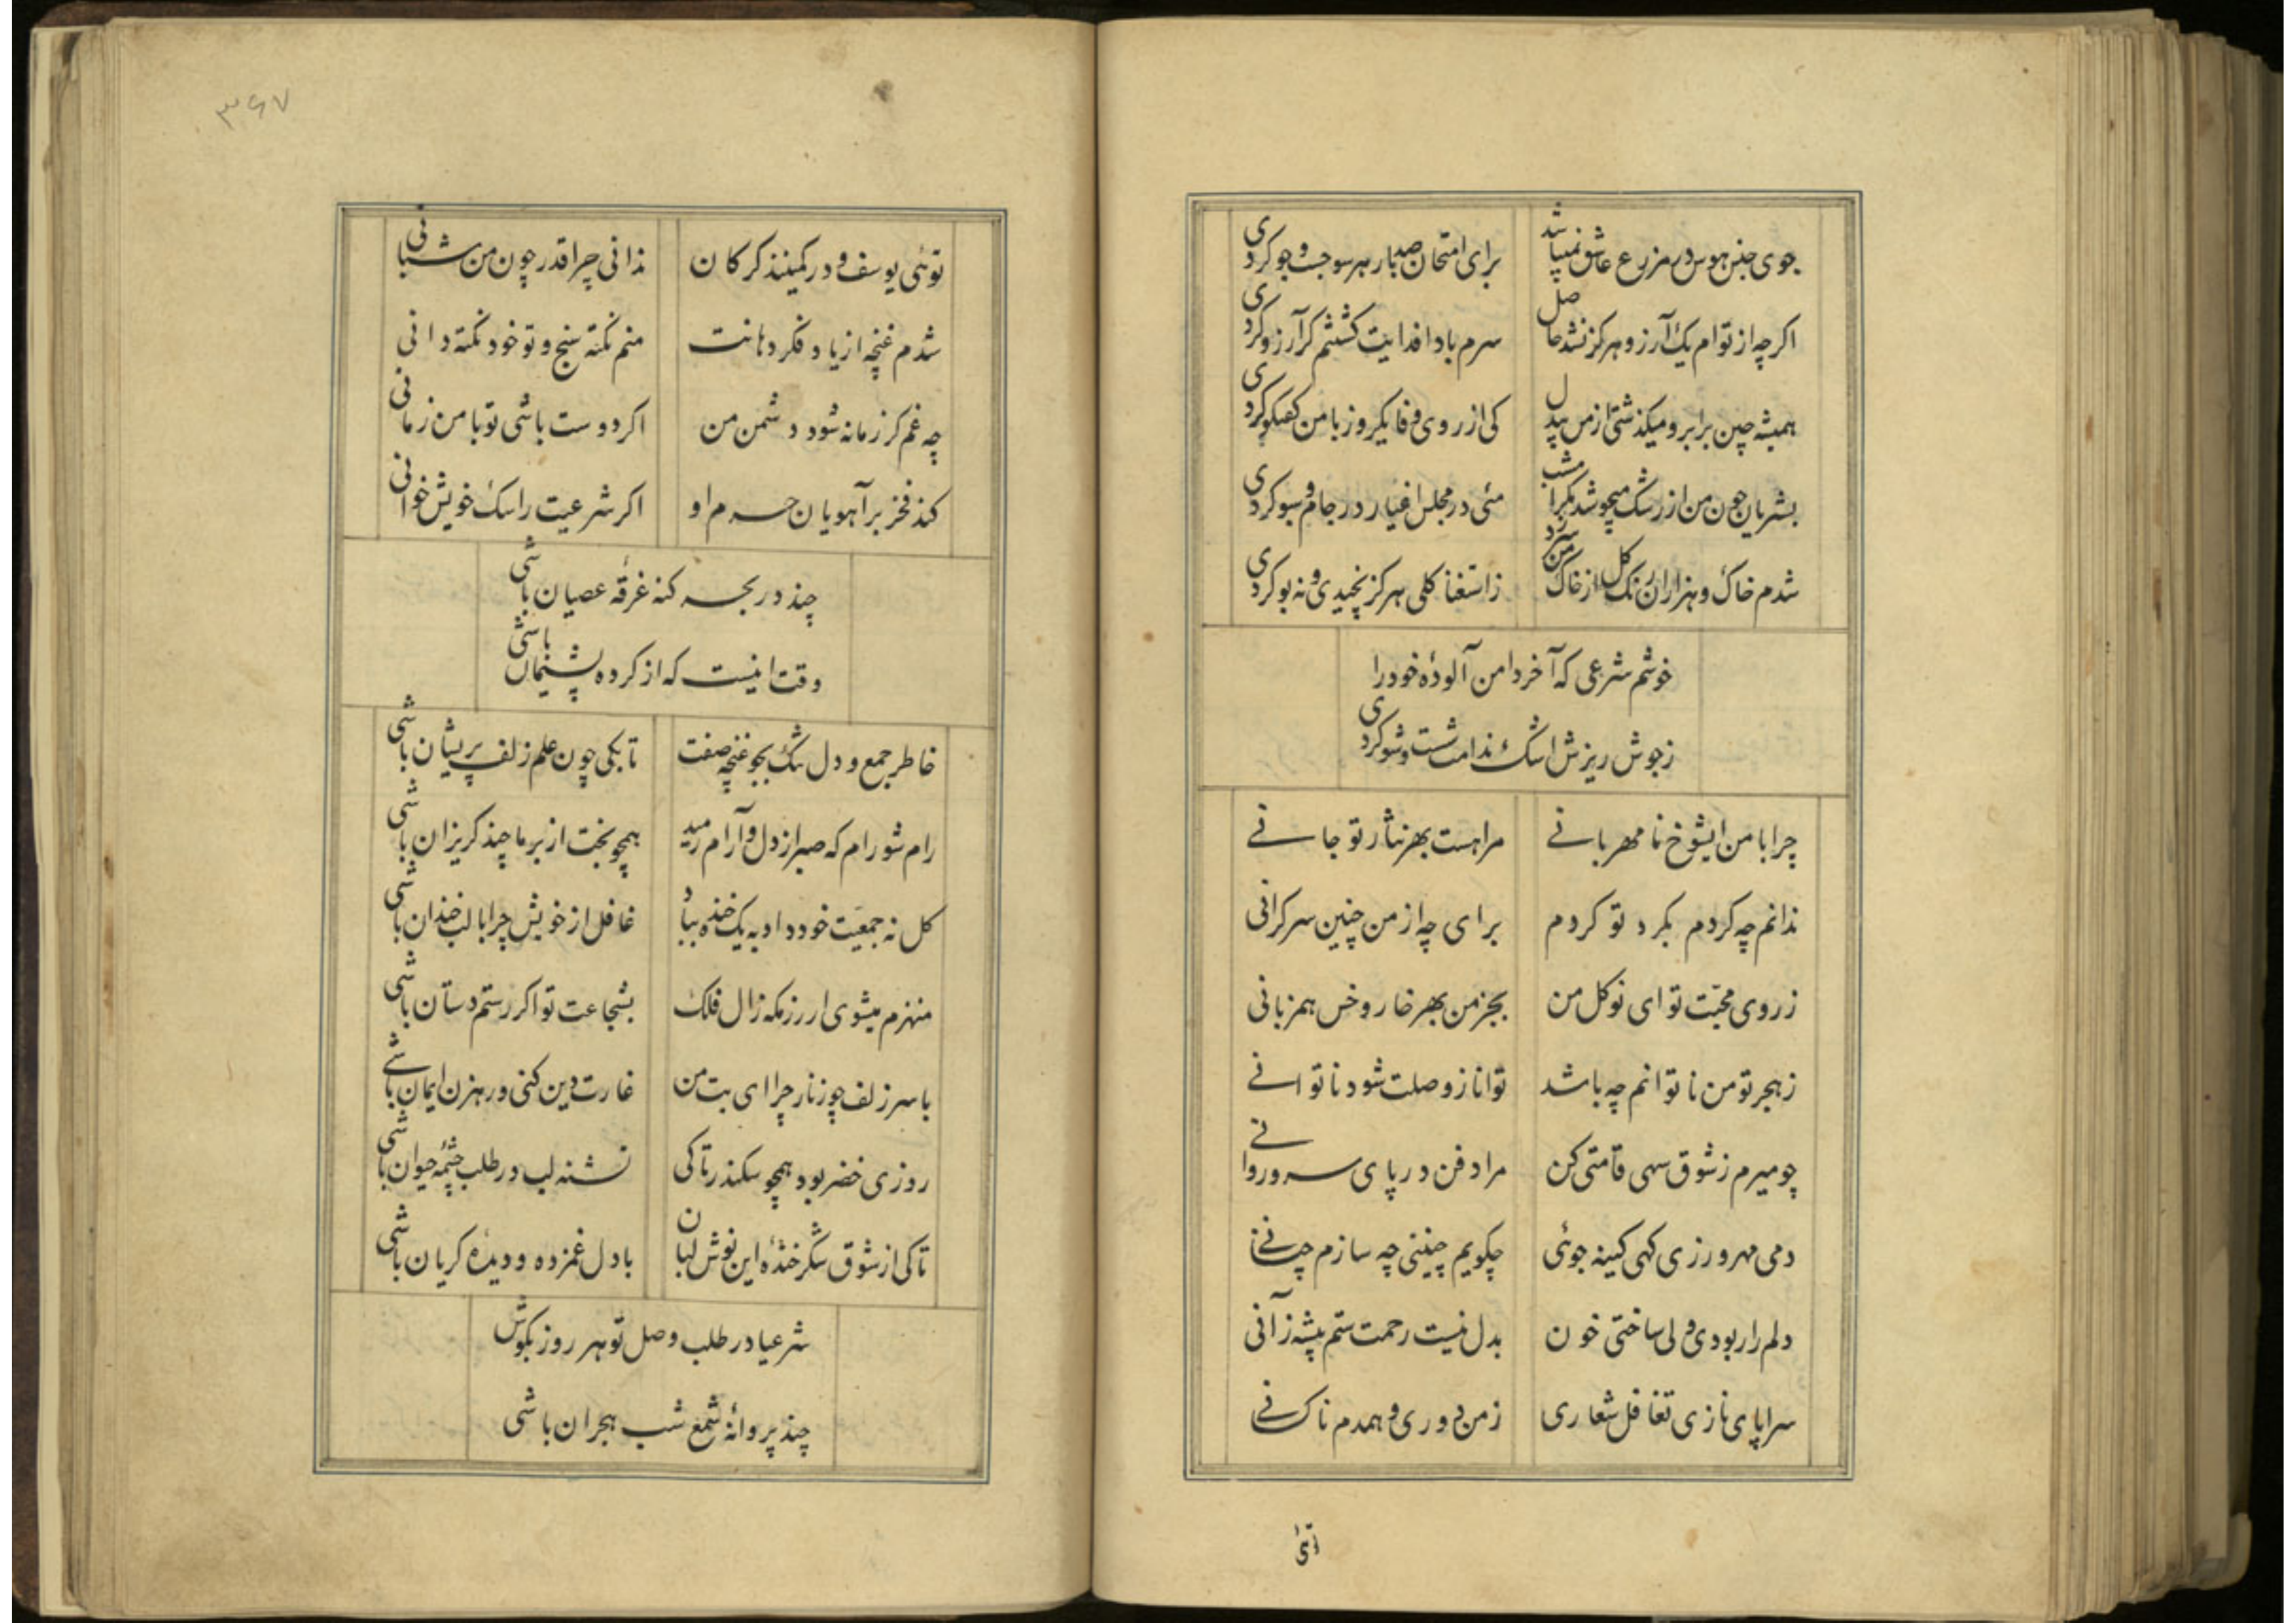 جوی جنس هوس در مزرع عاشق نمیباشد
برای امتحان صدبار هر سو جست و جو کردی
اکرچه از توام یک آرزو هرکز نشد حاصل
سرم بادا فدایت کشتنم کر آرزو کردی
همیشه چین برابرو میکذشتی از من بیدل
کی از روی وفا یکروز با من کفتکو کردی
بشریان خون من از رشک میجوشد مکر امشب
مئی در مجلس اغیار در جام و سبو کردی
شدم خاک و هزاران رنک کل از خاک من سرزد
ز استغنا کلی هرکز نچیدی و نه بو کردی
خوشم شرعی که آخر دامن آلودهٔ خود را
ز جوش ریزش اشک ندامت شست و شو کردی
چرا با من ایشوخ نامهربانے
مرا هست بهر نثار تو جانے
ندانم چه کردم بکرد تو کردم
برای چه از من چنین سرکرانی
ز روی محبّت تو ای نوکل من
بجز من بهر خار و خس همزبانی
ز هجر تو من ناتوانم چه باشد
توانا ز وصلت شود ناتوانے
چو میرم ز شوق سهی قامتی کن
مرا دفن در پای سرو روانے
دمی مهر ورزی کهی کینه جوئی
چکویم چنینی چه سازم چنانے
دلم را ربودی ولی ساختی خون
بدل نیست رحمت ستم پیشه زآنی
سراپای نازی تغافل شعاری
ز من دوری و همدم ناکسانے
توئی
۳۶۷
توئی یوسف و در کمینند کرکان
ندانی چرا قدر چون من شبانی
شدم غنچه از یاد فکر دهانت
منم نکته سنج و تو خود نکته دانی
چه غم کر زمانه شود دشمن من
اکر دوست باشی تو با من زمانی
کند فخر بر آهویان حرم او
اکر شرعیت را سک خویش خوانی
چند در بحر کنه غرقهٔ عصیان باشی
وقت انیست که از کرده پشیمان باشی
خاطر جمع و دل تنک بجو غنچه صفت
تا بکی چون علم زلف پریشان باشی
رام شو رام که صبر از دل و آرام رمید
همچو بخت از بر ما چند کریزان باشی
کل نه جمعیّت خود داد به یک خنده بباد
غافل از خویش چرا با لب خندان باشی
منهزم میشوی از رزمکه زال فلک
بشجاعت تو اکر رستم دستان باشی
با سر زلف چو زنار چرا ای بت من
غارت دین کنی و رهزن ایمان باشے
روزی خضر بود همچو سکندر تا کی
تشنه لب در طلب چشمهٔ حیوان باشی
تا کی از شوق شکرخندهٔ این نوش لبان
با دل غمزده و دیدهٔ کریان باشی
شرعیا در طلب وصل تو هر روز بکوش
چند پروانهٔ شمع شب هجران باشی